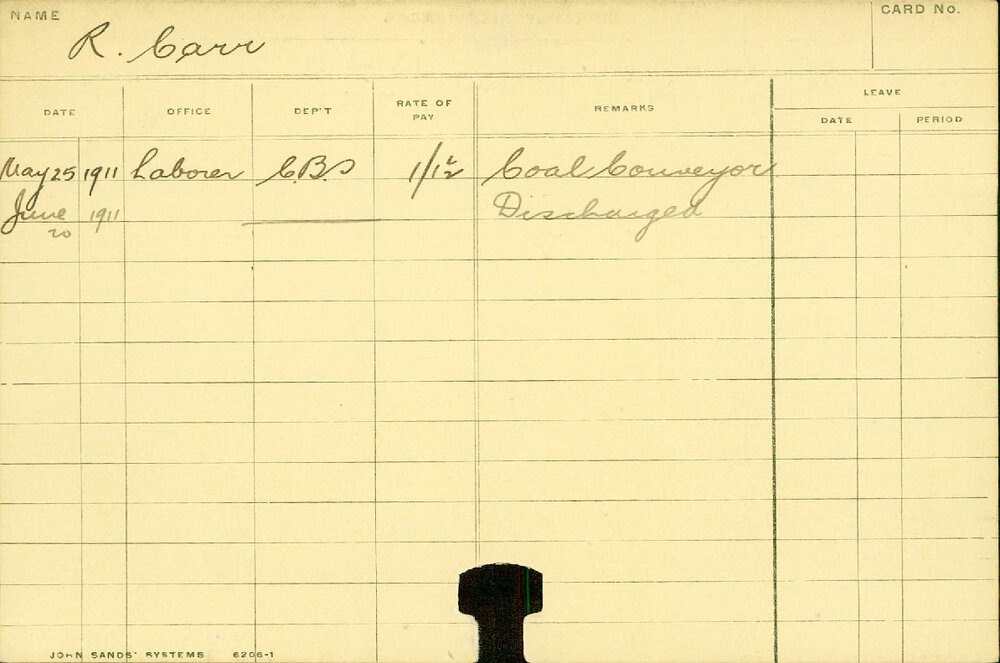 NAME R. Carr CARD No.
LEAVE
DATE OFFICE DEP'T RATE OF PAY REMARKS DATE PERIOD
May 25 1911 Laborer C.B.S 1/1½ Coal Conveyor
June 20 1911 Discharged
JOHN SANDS' SYSTEMS 6206-1